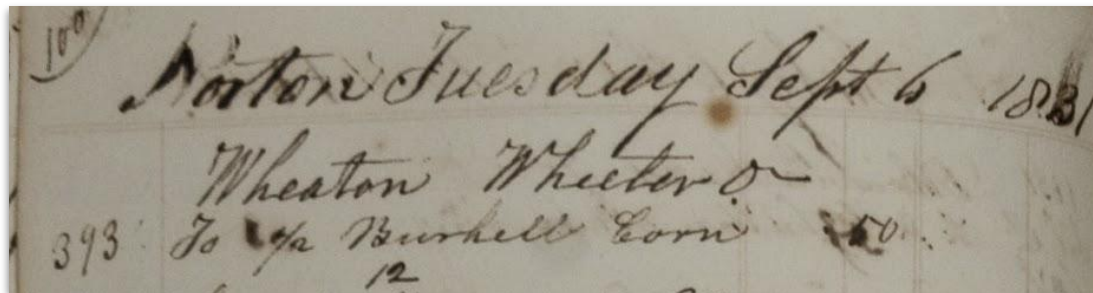 100
Norton Tuesday Sept 6 1831
Wheaton Wheeler Dr
393 To 1/2 Burhell Corn 50
12